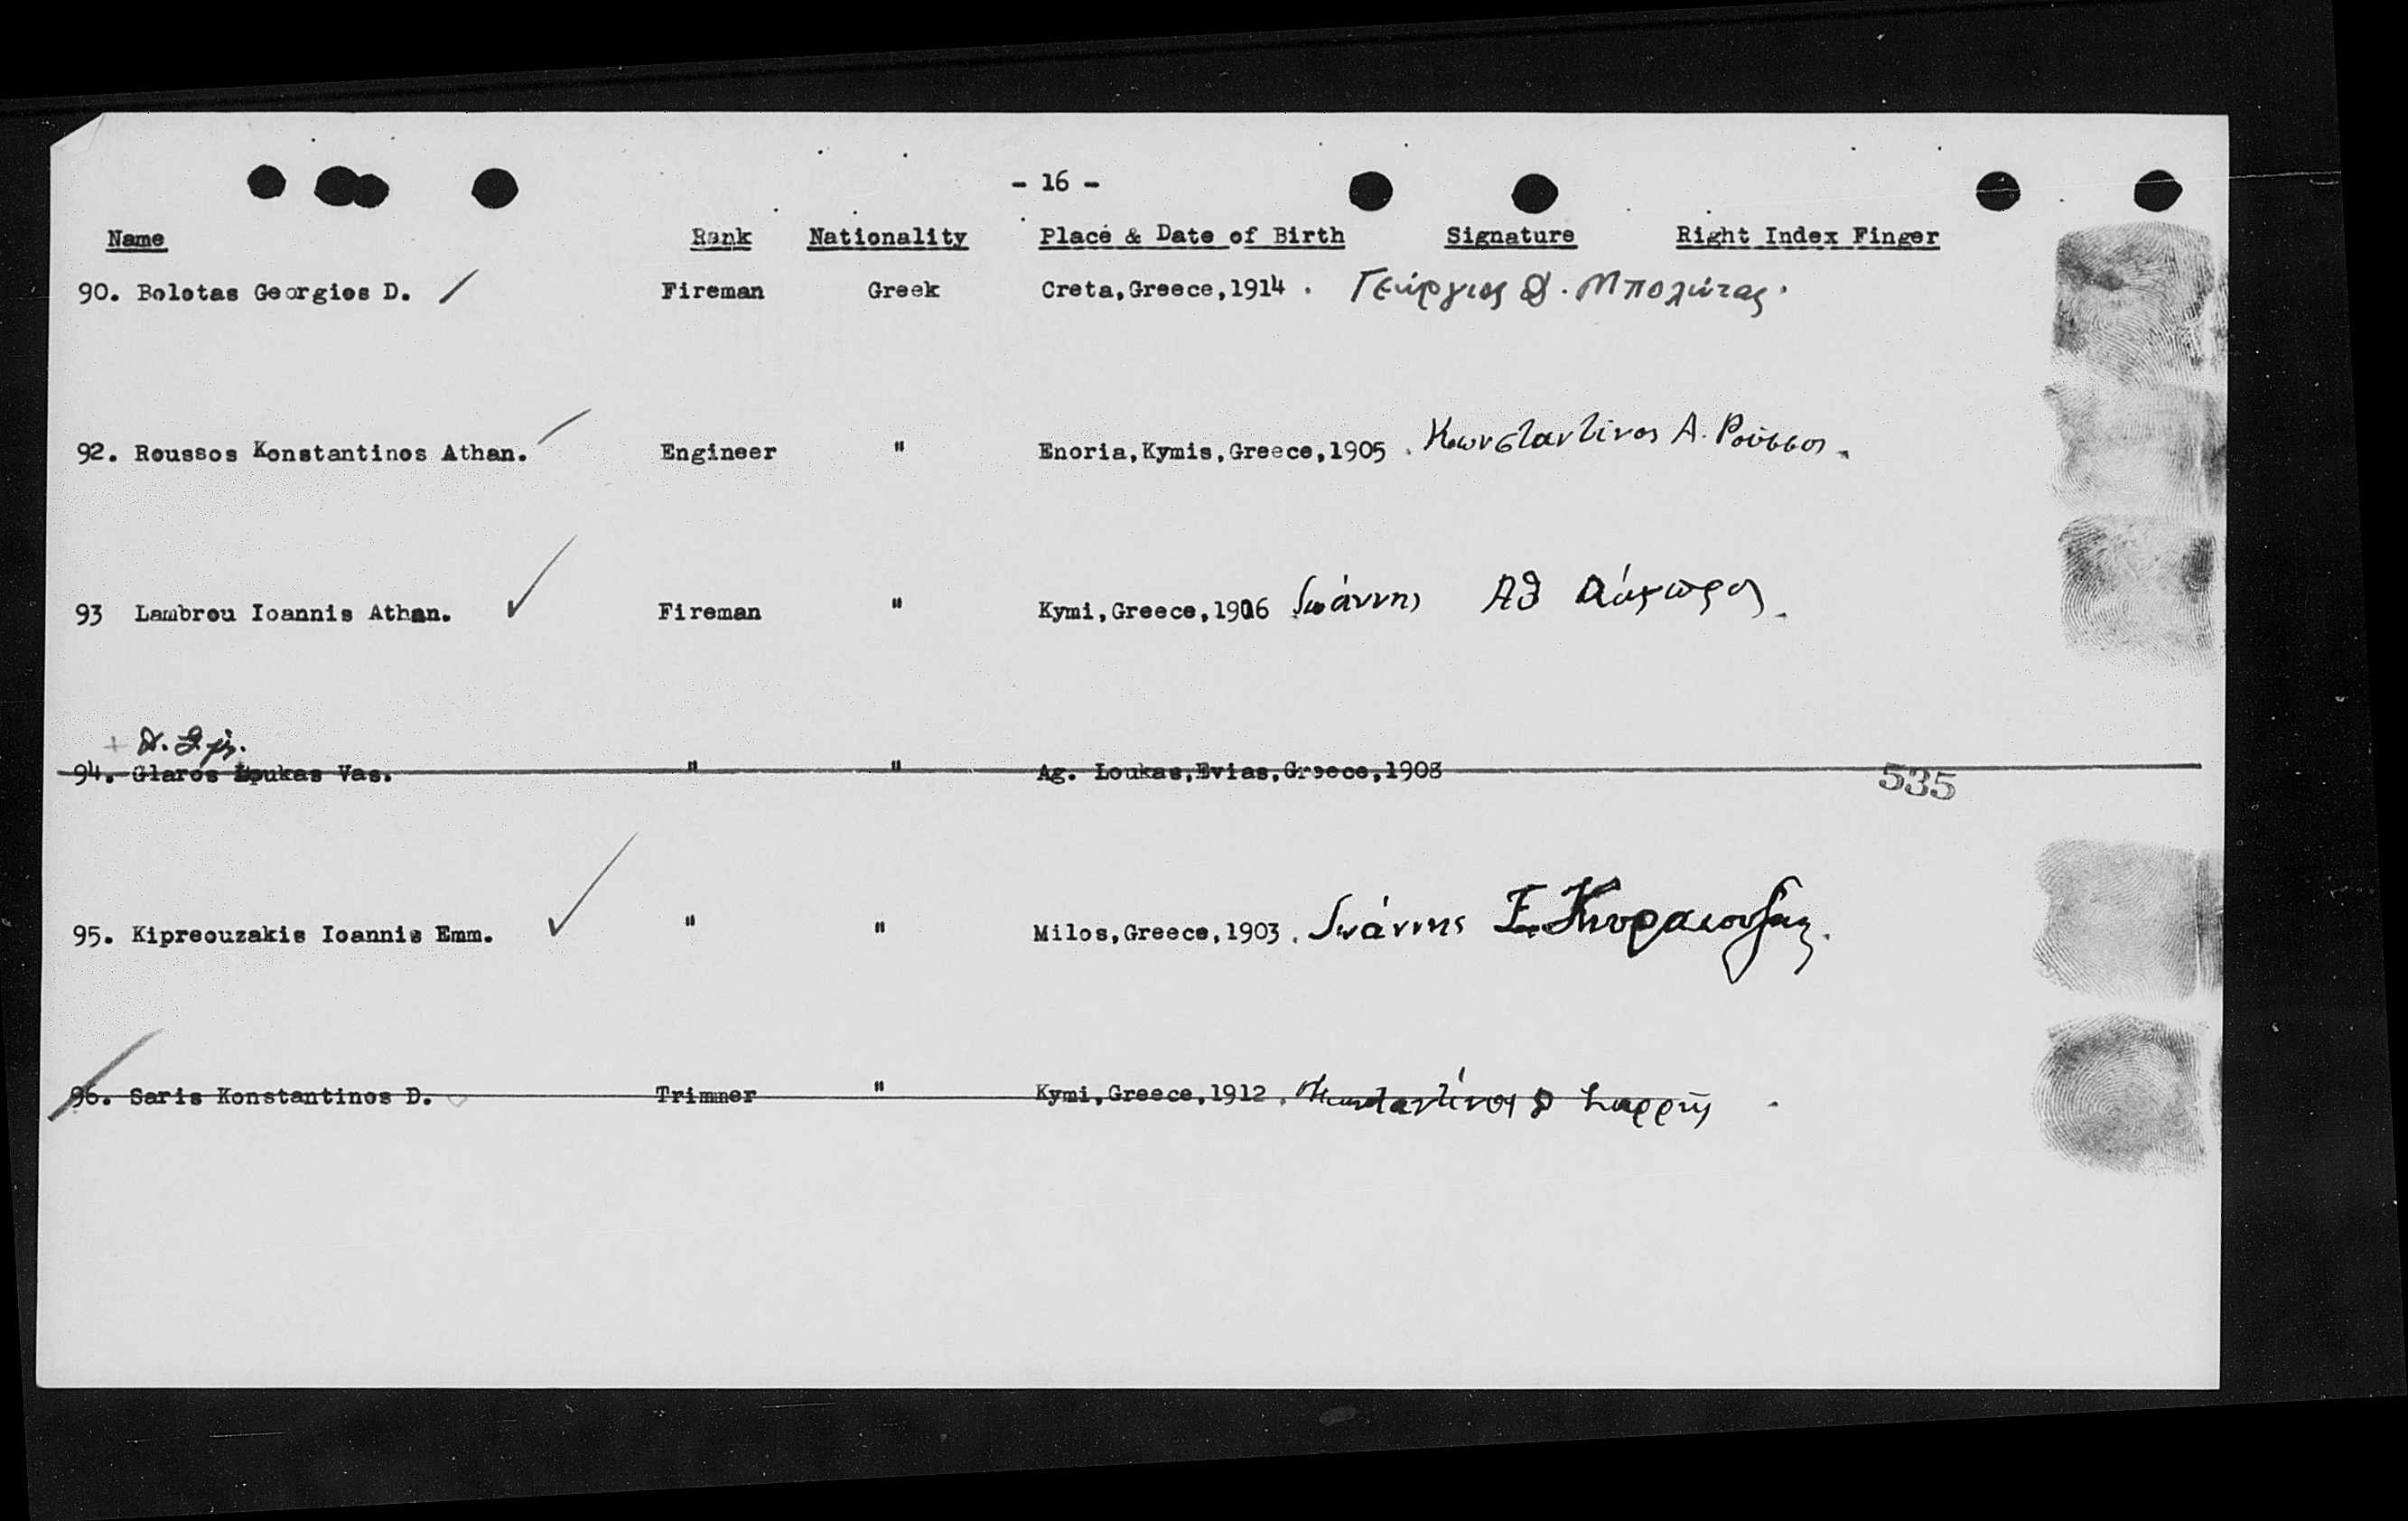 - 16 -
Name Rank Nationality Place & Date of Birth Signature Right Index Finger
90. Bolotas Georgios D. Fireman Greek Creta,Greece,1914 . Γεώργιος Δ. Μπολώτας.
92. Roussos Konstantinos Athan. Engineer " Enoria,Kymis,Greece,1905 . Κωνσταντίνος Α. Ρούσσος
93 Lambrou Ioannis Athan. Fireman " Kymi,Greece,1906 Ιωάννης Αθ Λάμπρου
94. Glaros Loukas Vas. " " Ag. Loukas,Evias,Greece,1908
535
95. Kipreouzakis Ioannis Emm. " " Milos,Greece,1903 . Ιωάννης Ε.
96. Saris Konstantinos D. Trimmer " Kymi,Greece,1912 . Κωνσταντίνος Δ Σαρρής